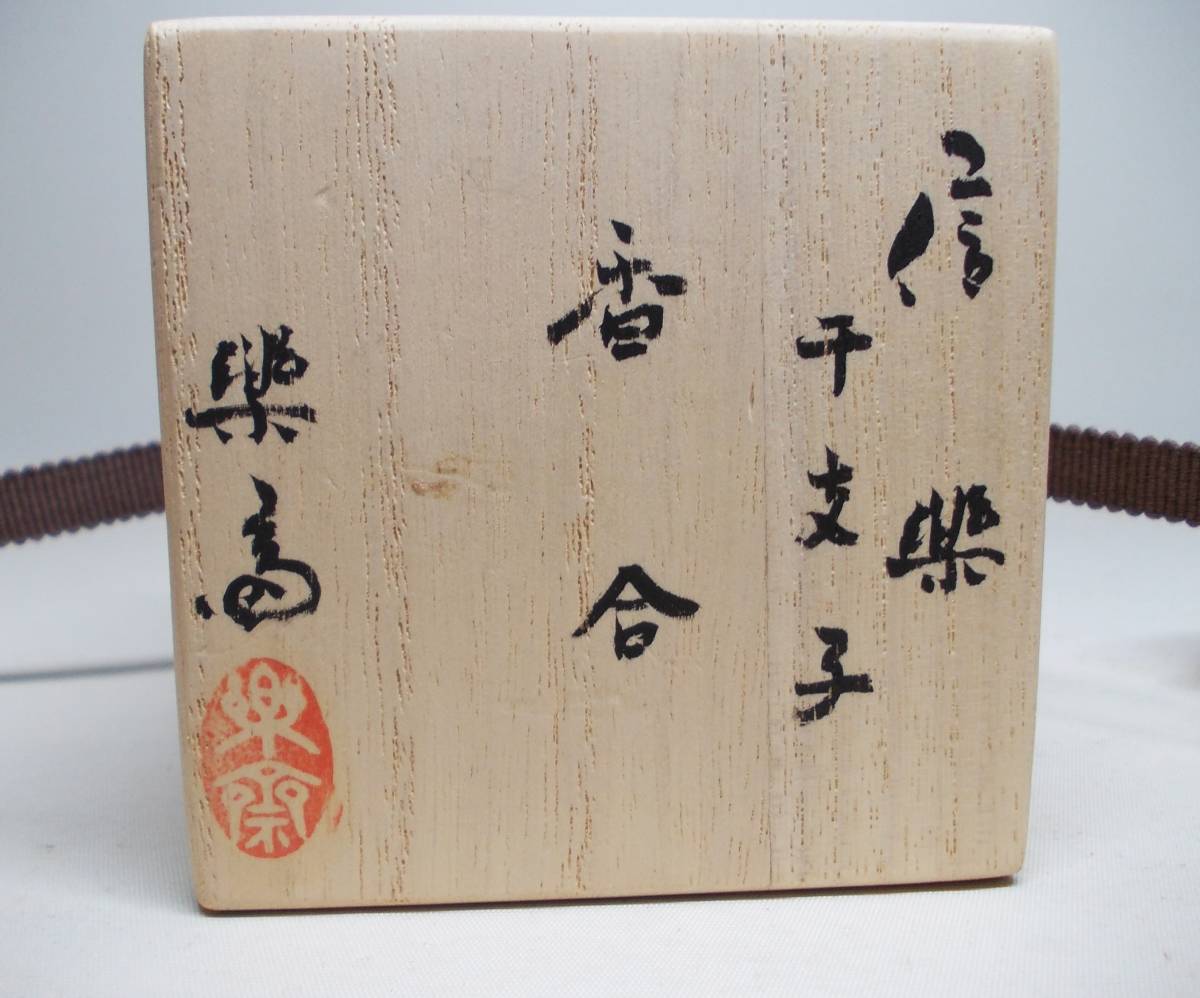 信樂
干支子
香合
樂斎
楽斎